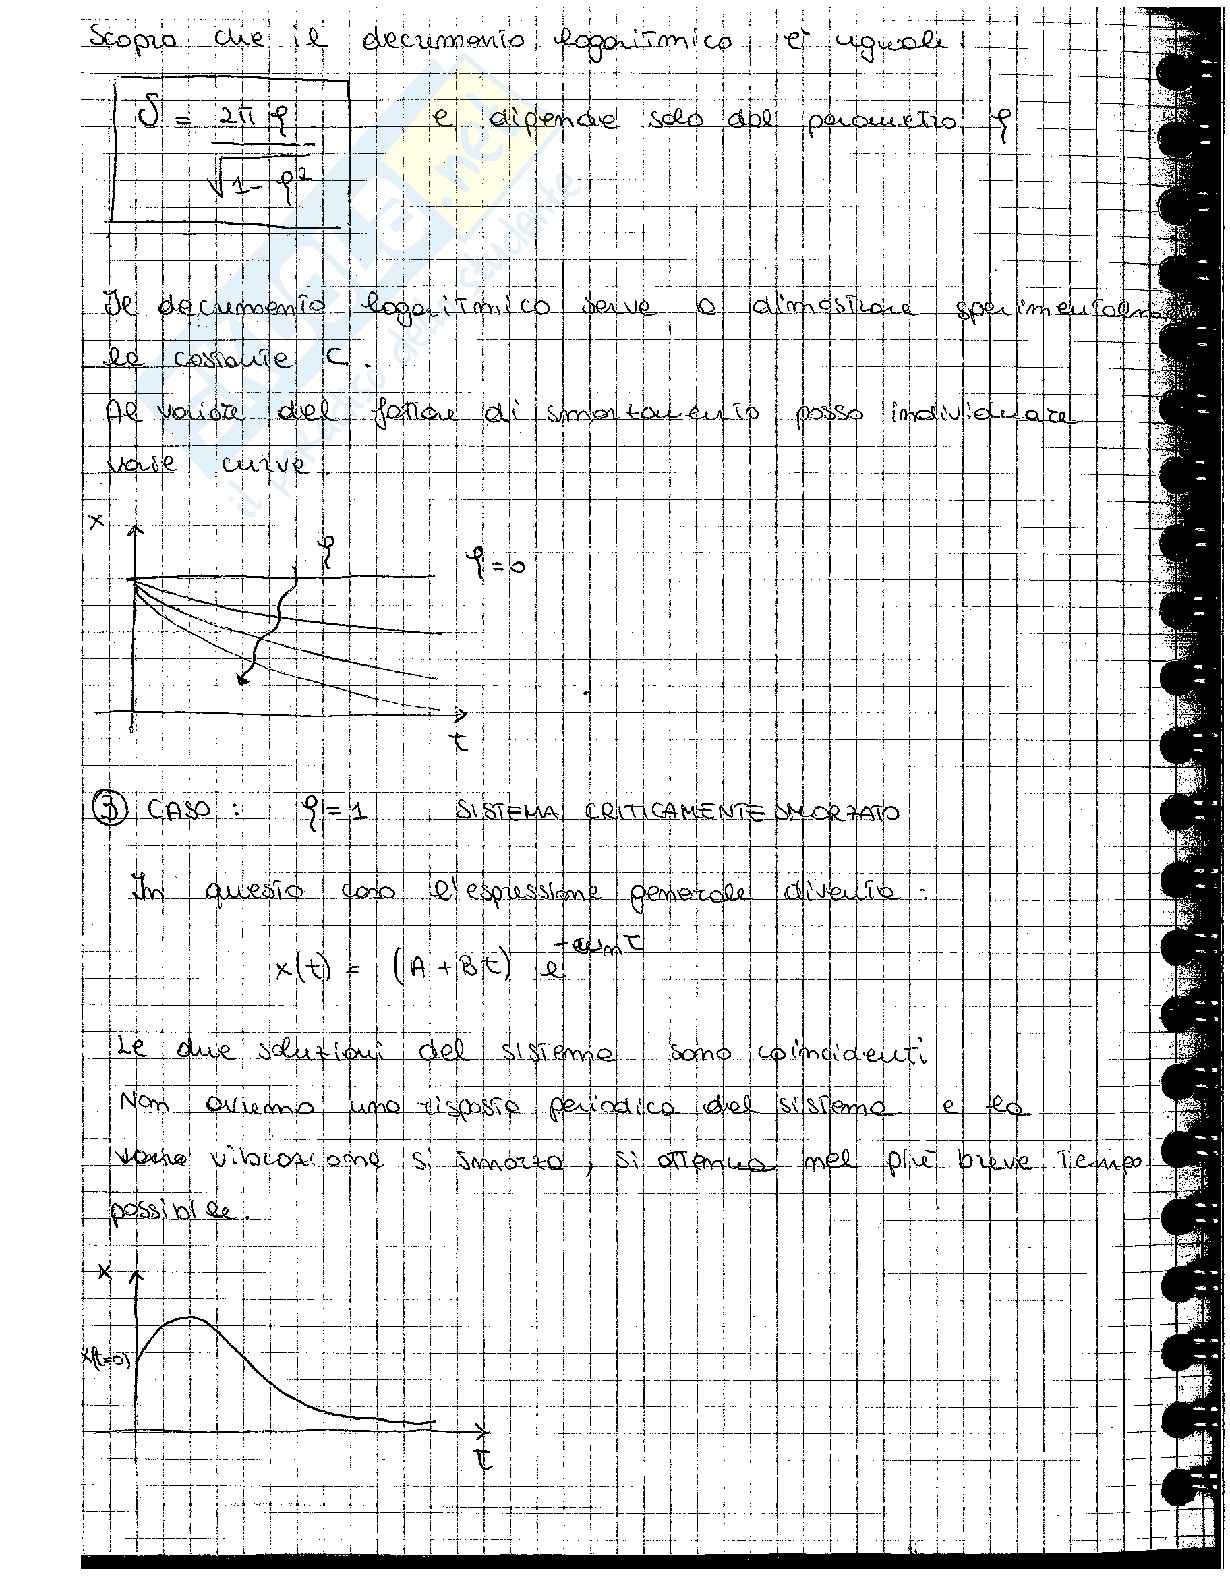 Scopro che il decremento logaritmico è uguale:
δ = 2π ξ / √1-ξ² e dipende solo dal parametro ξ
Il decremento logaritmico serve a dimostrare
la costante C.
Al variare del fattore di smorzamento posso individuare
varie curve.
x
ξ
ξ=0
t
③ CASO: ξ=1 SISTEMA CRITICAMENTE SMORZATO
In questo caso l'espressione generale diventa:
x(t) = (A+Bt) e^-ωnt
Le due soluzioni del sistema sono coincidenti
Non avremo una risposta periodica del sistema e la
vibrazione si smorza, si attenua nel più breve tempo
possibile.
x
x(t=0)
t